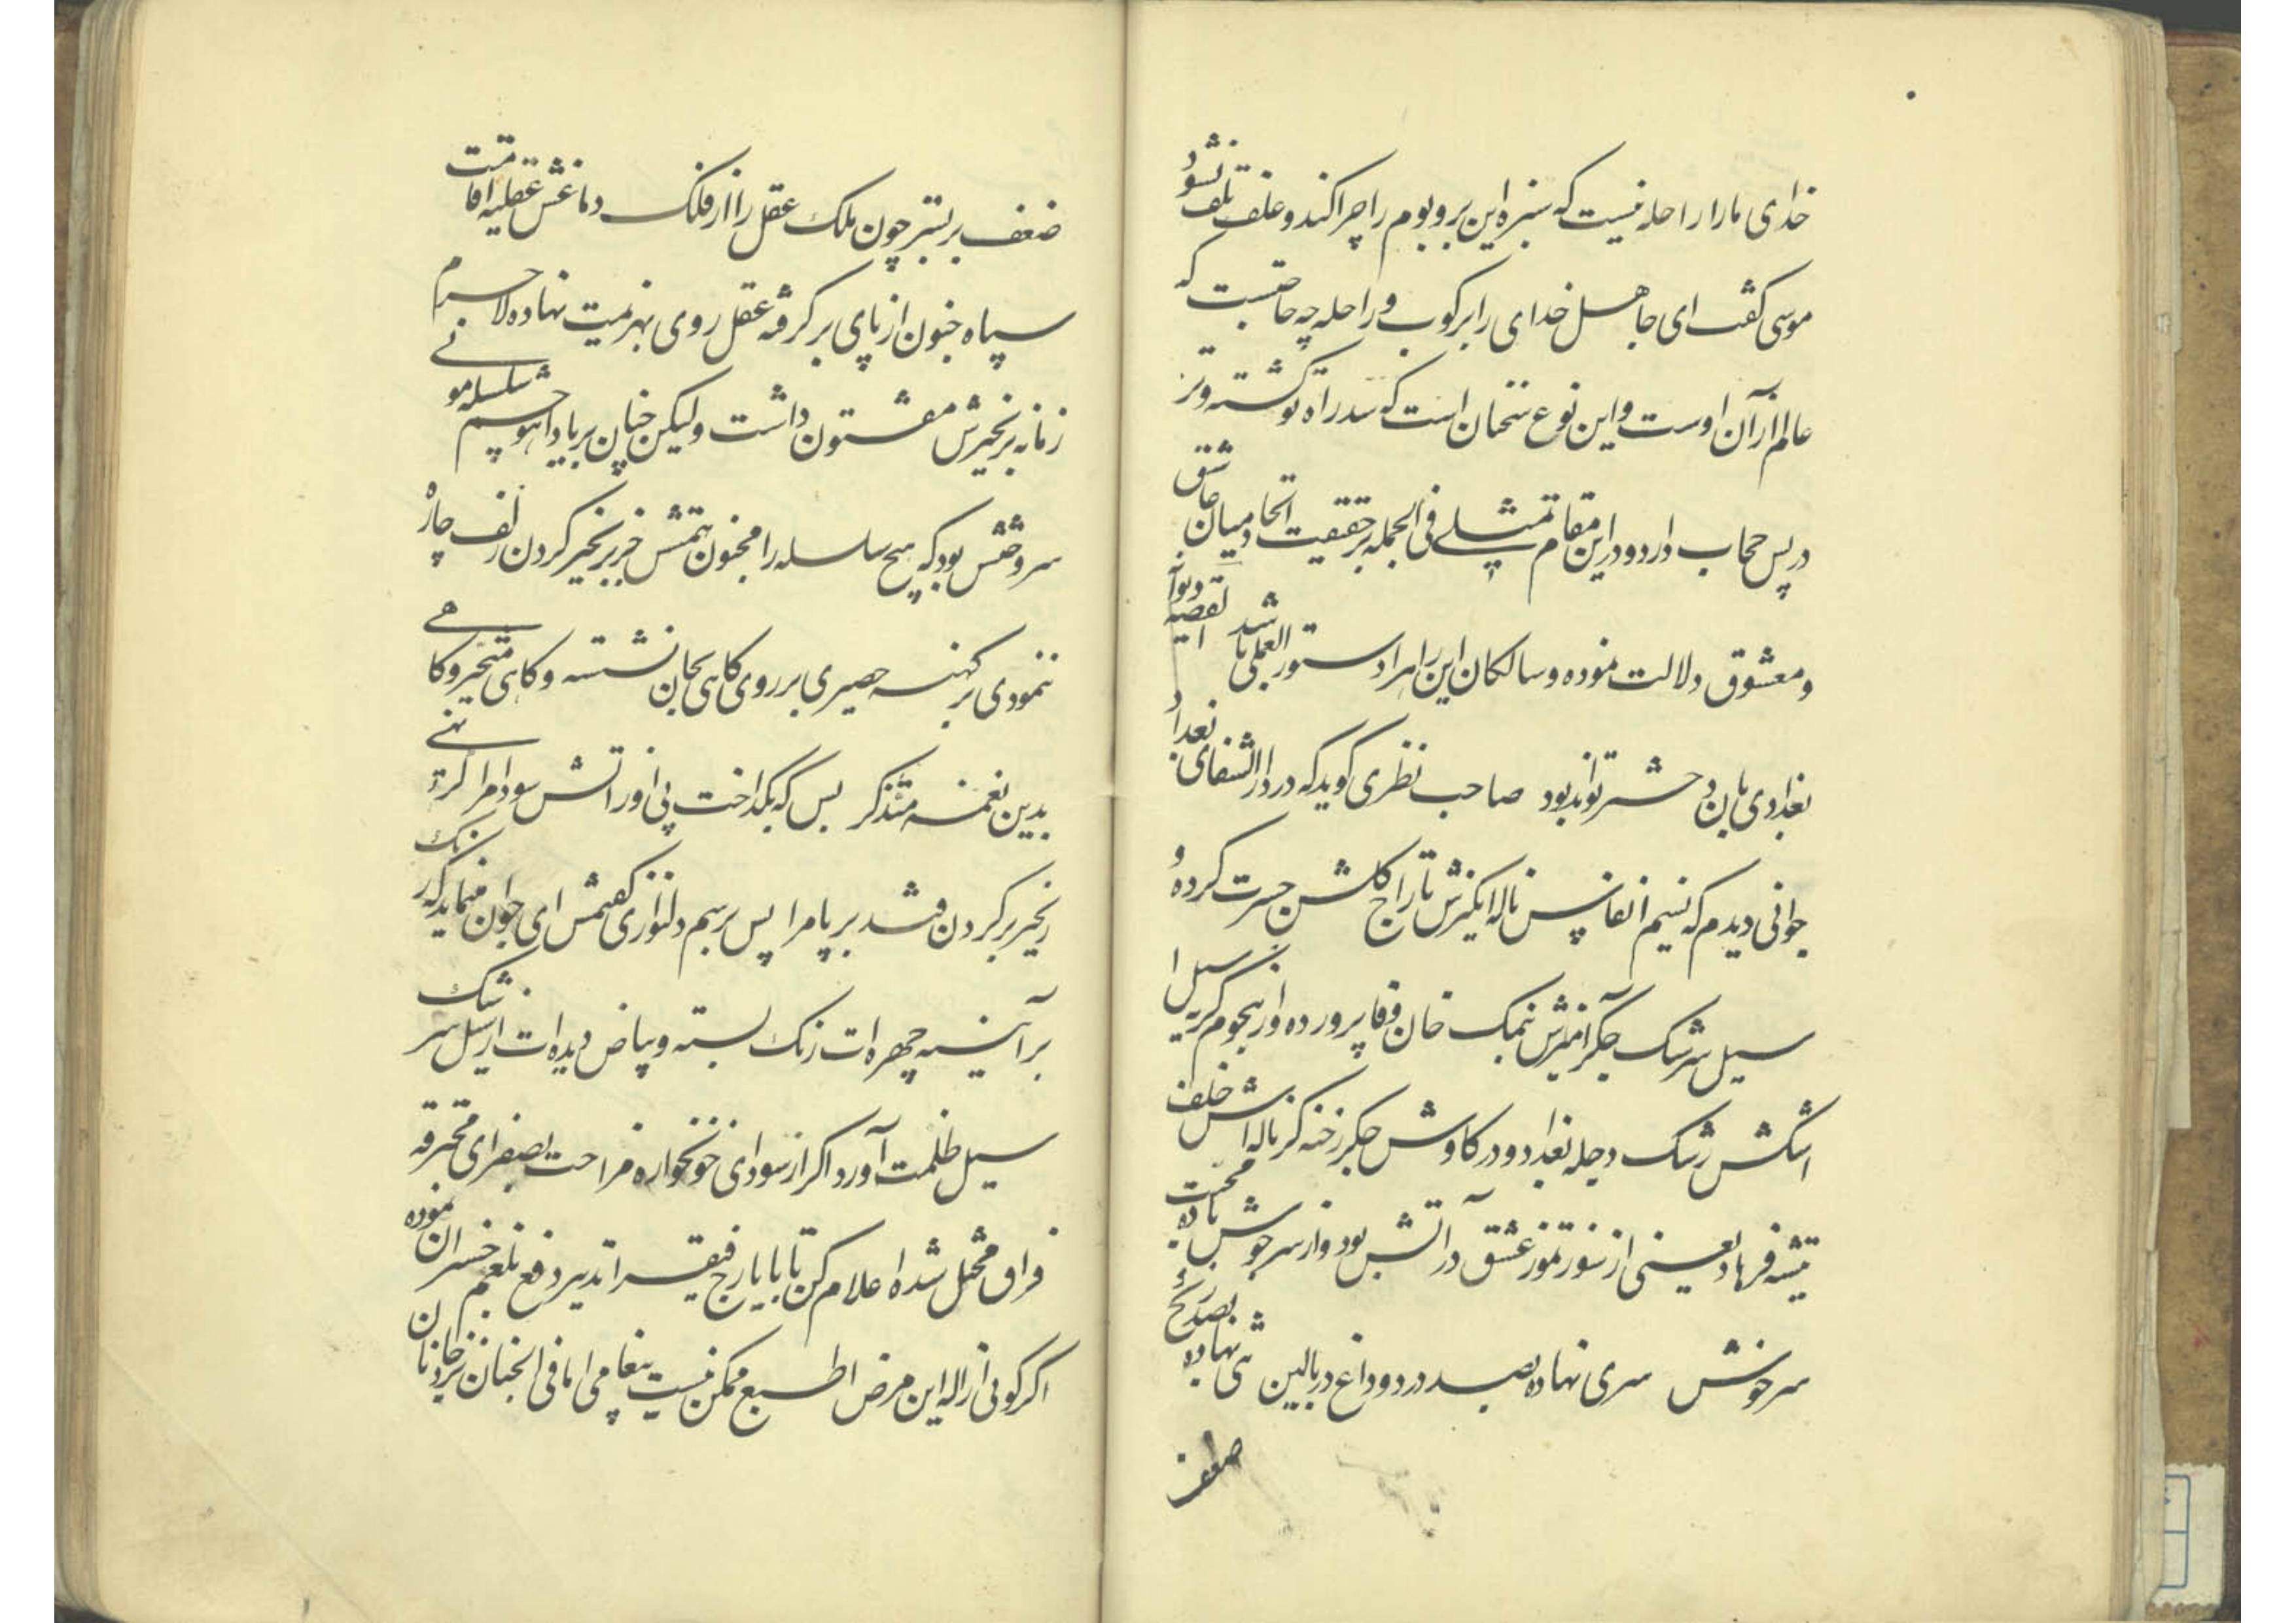 خدای مارا راحله نیست که سبزه این بر و بوم را چرا کند و علف تلف نشود
موسی گفت ای جاهل خدای را برکوب و راحله چه حاجتست که
عالم از آن اوست و این نوع سخنان است که سد راه تو گشته و ترا
در پس حجاب دارد و در این مقام تمثیلی فی الجمله بر حقیقت اتحاد میان عاشق
و معشوق دلالت نموده و سالکان این راه را دستور العملی باشد القصه دیوانه
بغدادی بان دختر تواند بود صاحب نظری گوید که در دار الشفای بغداد
جوانی دیدم که نسیم انفاس ناله انگیزش تاراج گلشن حسرت کرده و
سیل سرشک جگر آمیزش نمک خان وفا پرورده و از هجوم گریه سیل
اشکش رشک دجله بغداد و در کاوش جگر رخنه گر ناله اش خلف
تیشه فرهاد یعنی از سوز تموز عشق در آتش بود و از سر جوش باده محبت
سرخوش سری نهاده بصد درد و داغ در بالین تنی نهاده بصد رنج
ضعف
ضعف بر بستر چون ملک عقل را از فلک دماغش عقلیه اقامت
سپاه جنون از پای بر گرفته عقل روی بهزیمت نهاده لاجرم
زمانه بزنجیرش مفتون داشت ولیکن چنان بر یاد آهو چشم سلسله موئی
سر خوش بود که هیچ سلسله را مجنون بتمش جز بزنجیر کردن زلف چاره
ننمودی بر کهنه حصیری بر روی کاهی بجان نشسته و کاهی متحیر و کاهی
بدین نغمه متذکر بس که بگداخت پی او ز آتش سودا مرا گردنی
زنجیر بر گردن فتد بر پا مرا پس برسم دلنوازی گفتمش ای جوان مینماید که رنگ
بر آئینه چهره ات زنگ بسته و بیاض دیده ات از سیل سرشک
سیل ظلمت آورد اگر از سودای خونخواره مزاجت بصفرای محترقه
فراق مختل شده اعلام کن تا بایارج فیقرا تدبیر دفع بلغم خسران نموده
اگر گوئی ازاله این مرض اطبع ممکن نیست پیغامی اما فی الجنان نزد جانان